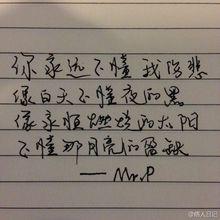 你永远不懂我伤悲
像白天不懂夜的黑
像永恒燃烧的太阳
不懂那月亮的盈缺
——Mr.P